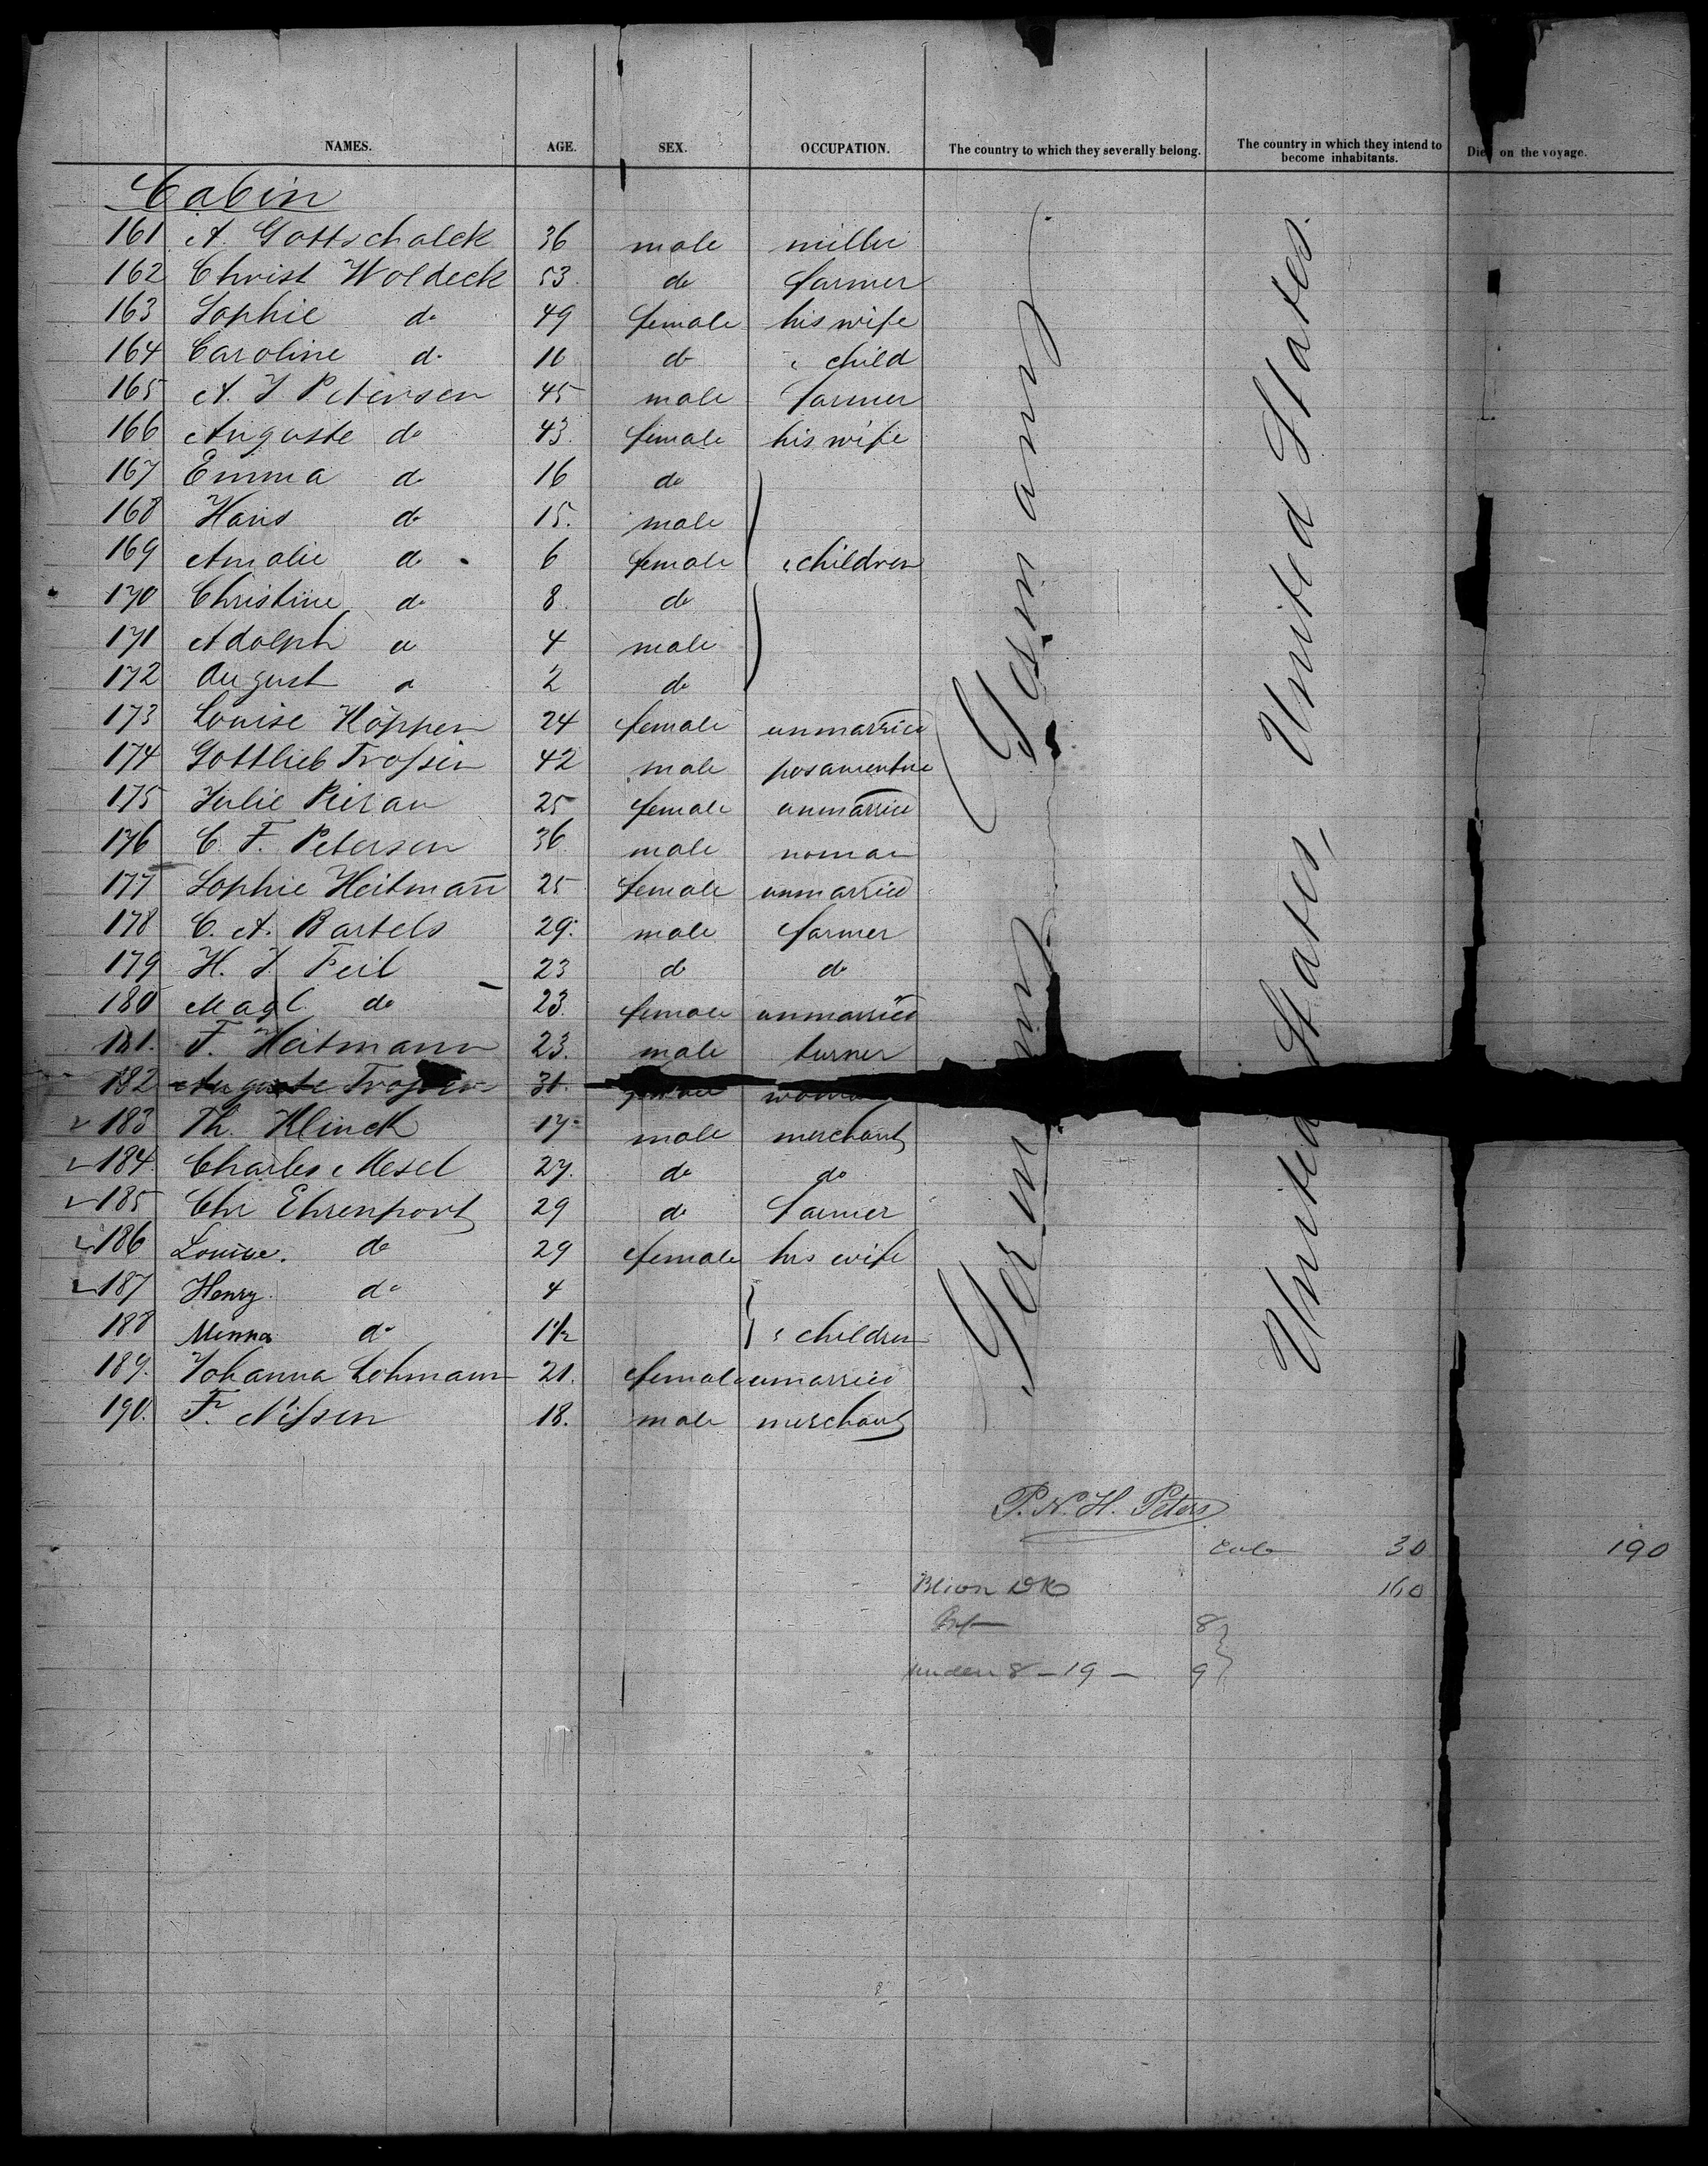 NAMES. AGE. SEX. OCCUPATION. The country to which they severally belong. The country in which they intend to become inhabitants. Died on the voyage.
Cabin
161 A. Gottschalck 36 male miller
162 Christ Woldeck 53. do farmer
163 Sophie do 49 female his wife
164 Caroline do 10 do " child
165 A. J. Petersen 45 male farmer
166 Auguste do 43. female his wife
167 Emma do 16 do
168 Hans do 15. male
169 Amalie do 6 female " children
170 Christine do 8. do
171 Adolph do 4 male
172 August do 2 do
173 Louise Höppen 24 female unmarried
174 Gottlieb Troſsin 42 male
175 Julie 25 female unmarried
176 C. F. Petersen 36 male
177 Sophie Heitman̄ 25 female unmarried
178 C. A. Bartels 29. male farmer
179 H. J. Feil 23 do do
180 Magl. do 23. female unmarried
181. F. Heitmann 23. male turner
182 Auguste 31.
183 Th. Klinck 17. male merchant
184. Charles Mesel 27. do do
185 Chr Ehrenport 29 do farmer
186 Louise. do 29 female his wife
187 Henry. do 4
188 Minna do 1 1/2 " children
189. Johanna Lohmann 21. female unmarried
190. F. Niſsen 18. male merchant
Germany
United States.
Germany
United States,
P. N. H. Peters
Cab 30 190
160
8
under 8 - 19 - 9